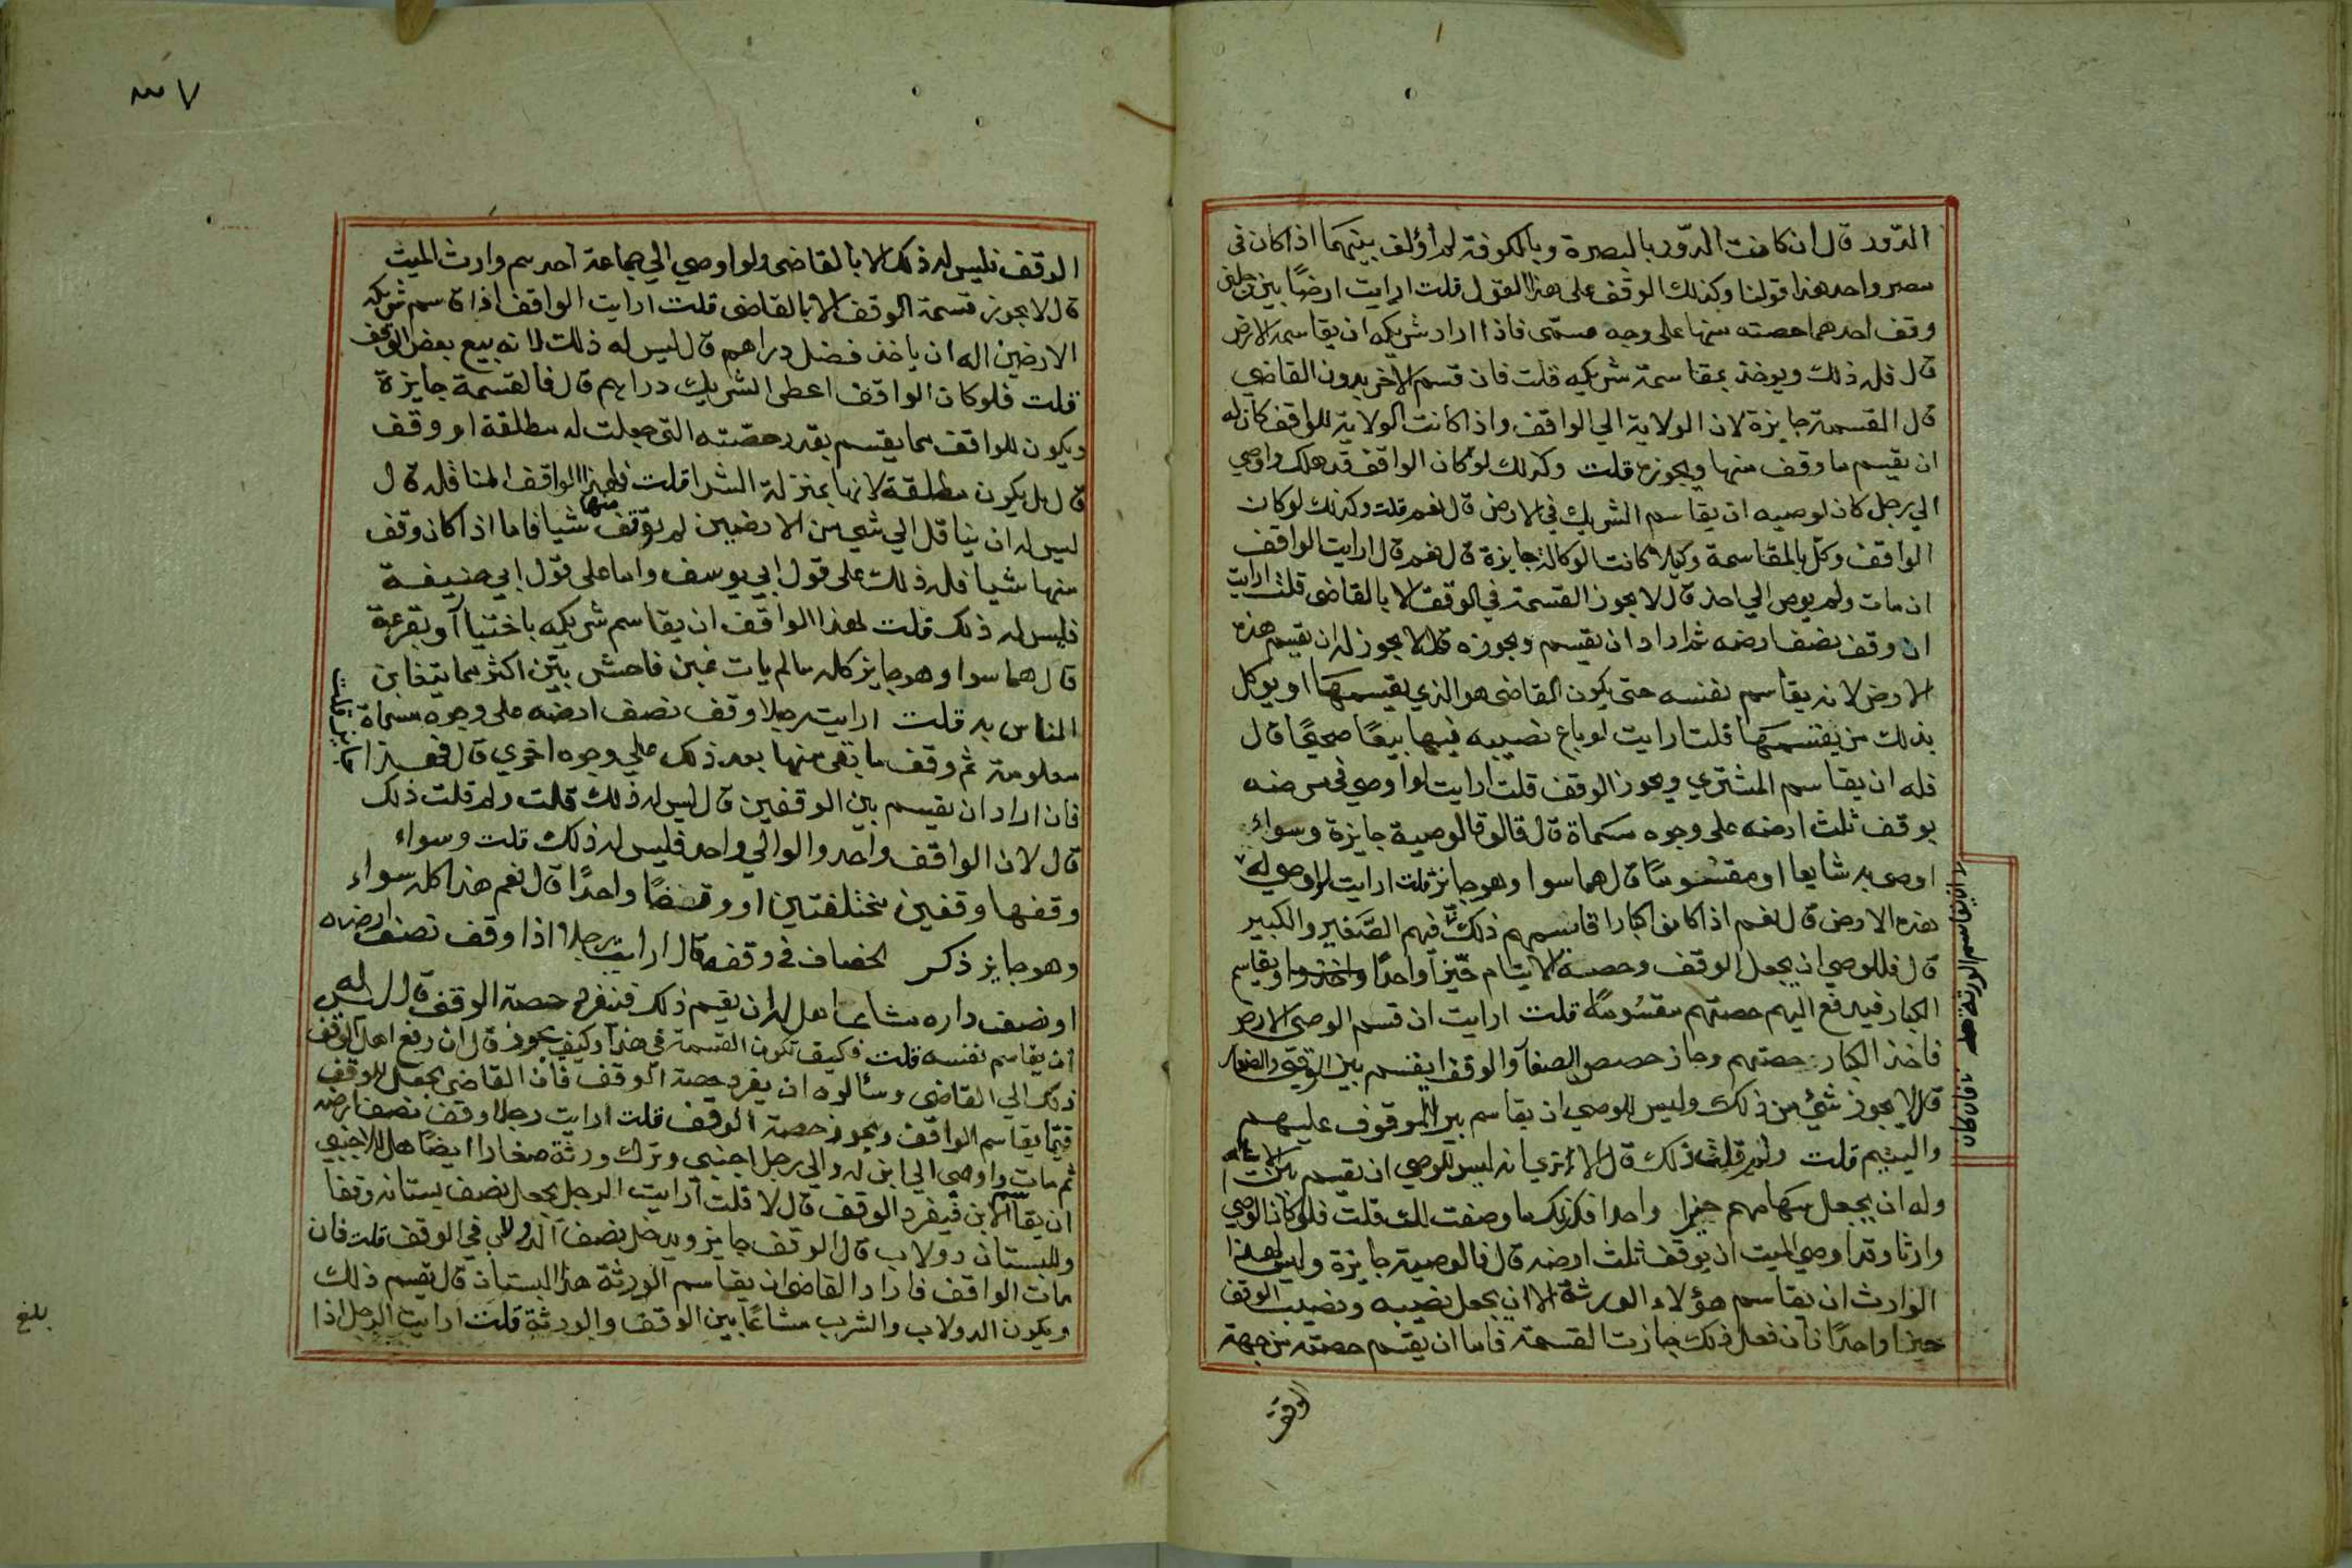 الدور قال ان كانت الدور بالبصرة وبالكوفة لم أؤلف بينهما اذا كان في
مصر واحد هذا قولنا وكذلك الوقف على هذا القول قلت ارايت ارضا بين رجلين
وقف احدهما حصته منها على وجه مسمى فاذا اراد شريكه ان يقاسمه الارض
قال فله ذلك ويوخذ بمقاسمة شريكه قلت فان قسم الاخر بدون القاضي
قال القسمة جايزة لان الولاية الي الواقف واذا كانت الولاية للواقف كان له
ان يقسم ما وقف منها ويجوزه قلت وكذلك لو كان الواقف قد هلك واوصي
الي رجل كان لوصيه ان يقاسم الشريك في الارض قال نعم قلت وكذلك لو كان
الواقف وكل بالمقاسمة وكيلا كانت الوكالة جايزة قال نعم قال ارايت الواقف
ان مات ولم يوص الي احد قال لا يجوز القسمة في الوقف الا بالقاضى قلت ارايت
ان وقف نصف ارضه ثم اراد ان يقسم ويجوزه قال لا يجوز له ان يقسم هذه
الارض لانه يقاسم نفسه حتى يكون القاضى هو الذي يقسمها او يوكل
بذلك من يقسمها قلت ارايت لو باع نصيبه فيها بيعا صحيحا قال
فله ان يقاسم المشتري ويحوز الوقف قلت ارايت لو اوصي في مرضه
بوقف ثلث ارضه على وجوه مسماة قال قالوقا لوصية جايزة وسواء
اوصى به شايعا او مقسوما قال هما سوا وهو جايز قلت ارايت للوصي له
هذه الارض قال نعم اذا كانوا كبارا قاسمهم ذلك فيهم الصغير والكبير
قال فللوصي ان يجعل الوقف وحصة الايتام حيزا واحدا ويقاسم
الكبار فيدفع اليهم حصتهم مقسومة قلت ارايت ان قسم الوصي الارض
فاخذ الكبار حصتهم وحاز حصص الصغار والوقف ايقسم بين الوقف والصغار
قال لا يجوز شئ من ذلك وليس للوصي ان يقاسم بين الموقوف عليهم
واليتيم قلت ولم قلت ذلك قال الا تري انه ليس للوصي ان يقسم بين الايتام
وله ان يجعل سهامهم حيزا واحدا فكذلك ما وصفت لك قلت فلو كان الوصي
وارثا وقد اوصي الميت ان يوقف ثلث ارضه قال فالوصية جايزة وليس لهذا
الوارث ان يقاسم هؤلاء الورثة الا ان يجعل نصيبه ونصيب الوقف
حيزا واحدا فان فعل ذلك جازت القسمة فاما ان يقسم حصته من جهة
الوقف
الوقف فليس له ذلك الا بالقاضى ولو اوصي الي جماعة احدهم وارث الميت
قال لا يجوز قسمة الوقف الا بالقاضى قلت ارايت الواقف اذا قاسم شريكه
الارضين اله ان ياخذ فضل دراهم قال ليس له ذلك لانه بيع بعض الوقف
قلت فلو كان الواقف اعطى الشريك دراهم قال فالقسمة جايزة
ويكون للواقف مما يقسم بقدر حصته التى جعلت له مطلقة او وقف
قال بل يكون مطلقة لانها بمنزلة الشرا قلت فلهذا الواقف المناقلة قال
ليس له ان يناقل الي شي من الارضين لم يوقف منها شيا فاما اذا كان وقف
منها شيا فله ذلك على قول ابي يوسف واما على قول ابي حنيفة
فليس له ذلك قلت لهذا الواقف ان يقاسم شريكه باختيا او بقرعة
قال هما سوا وهو جايز كله مالم يات غبن فاحش بيّن اكثر مما يتغابن
الناس به قلت ارايت رجلا وقف نصف ارضه على وجوه مسماة
معلومة ثم وقف ما بقى منها بعد ذلك علي وجوه اخري قال فهذا
جايز قلت
فان اراد ان يقسم بين الوقفين قال ليس له ذلك قلت ولم قلت ذلك
قال لان الواقف واحد والوالي واحد فليس له ذلك قلت وسواء
وقفها وقفين مختلفتين او وقفا واحدا قال نعم هذا كله سواء
وهو جايز ذكر الخصاف في وقفه قال ارايت رجلا اذا وقف نصف ارضه
او نصف داره مشاعا هل له ان يقسم ذلك فتفرد حصة الوقف قال ليس له
ان يقاسم نفسه قلت فكيف تكون القسمة في هذا وكيف يجوز قال ان رفع اهل الوقف
ذلك الي القاضى وسألوه ان يفرد حصة الوقف فان القاضى يجعل للوقف
قيما يقاسم الواقف ويحوز حصة الوقف قلت ارايت رجلا وقف نصف ارضه
ثم مات واوصي الي ابن له والي رجل اجنبي وترك ورثة صغارا ايضا هل للاجنبي
ان يقاسم الابن فيفرد الوقف قال لا قلت ارايت الرجل يجعل نصف بستانه وقفا
وللبستان دولاب قال الوقف جايز ويدخل نصف الدولاب في الوقف قلت فان
مات الواقف فاراد القاضى ان يقاسم الورثة هذا البستان قال يقسم ذلك
ويكون الدولاب والشرب مشاعا بين الوقف والورثة قلت ارايت الرجل اذا
بلغ